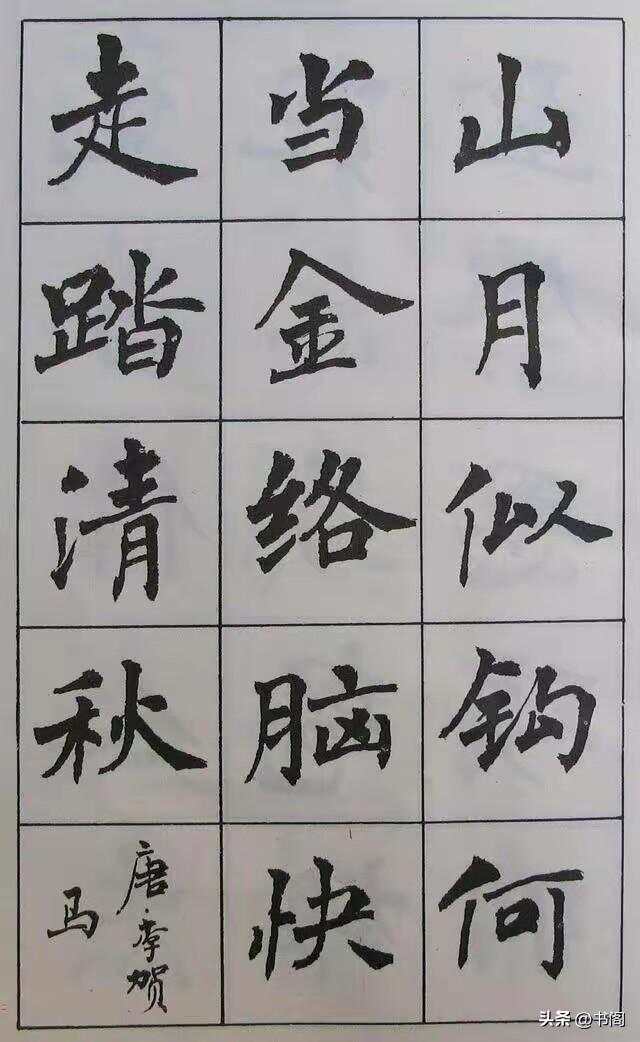 山月似钩何
当金络脑快
走踏清秋
唐·李贺
马
头条 @书阁